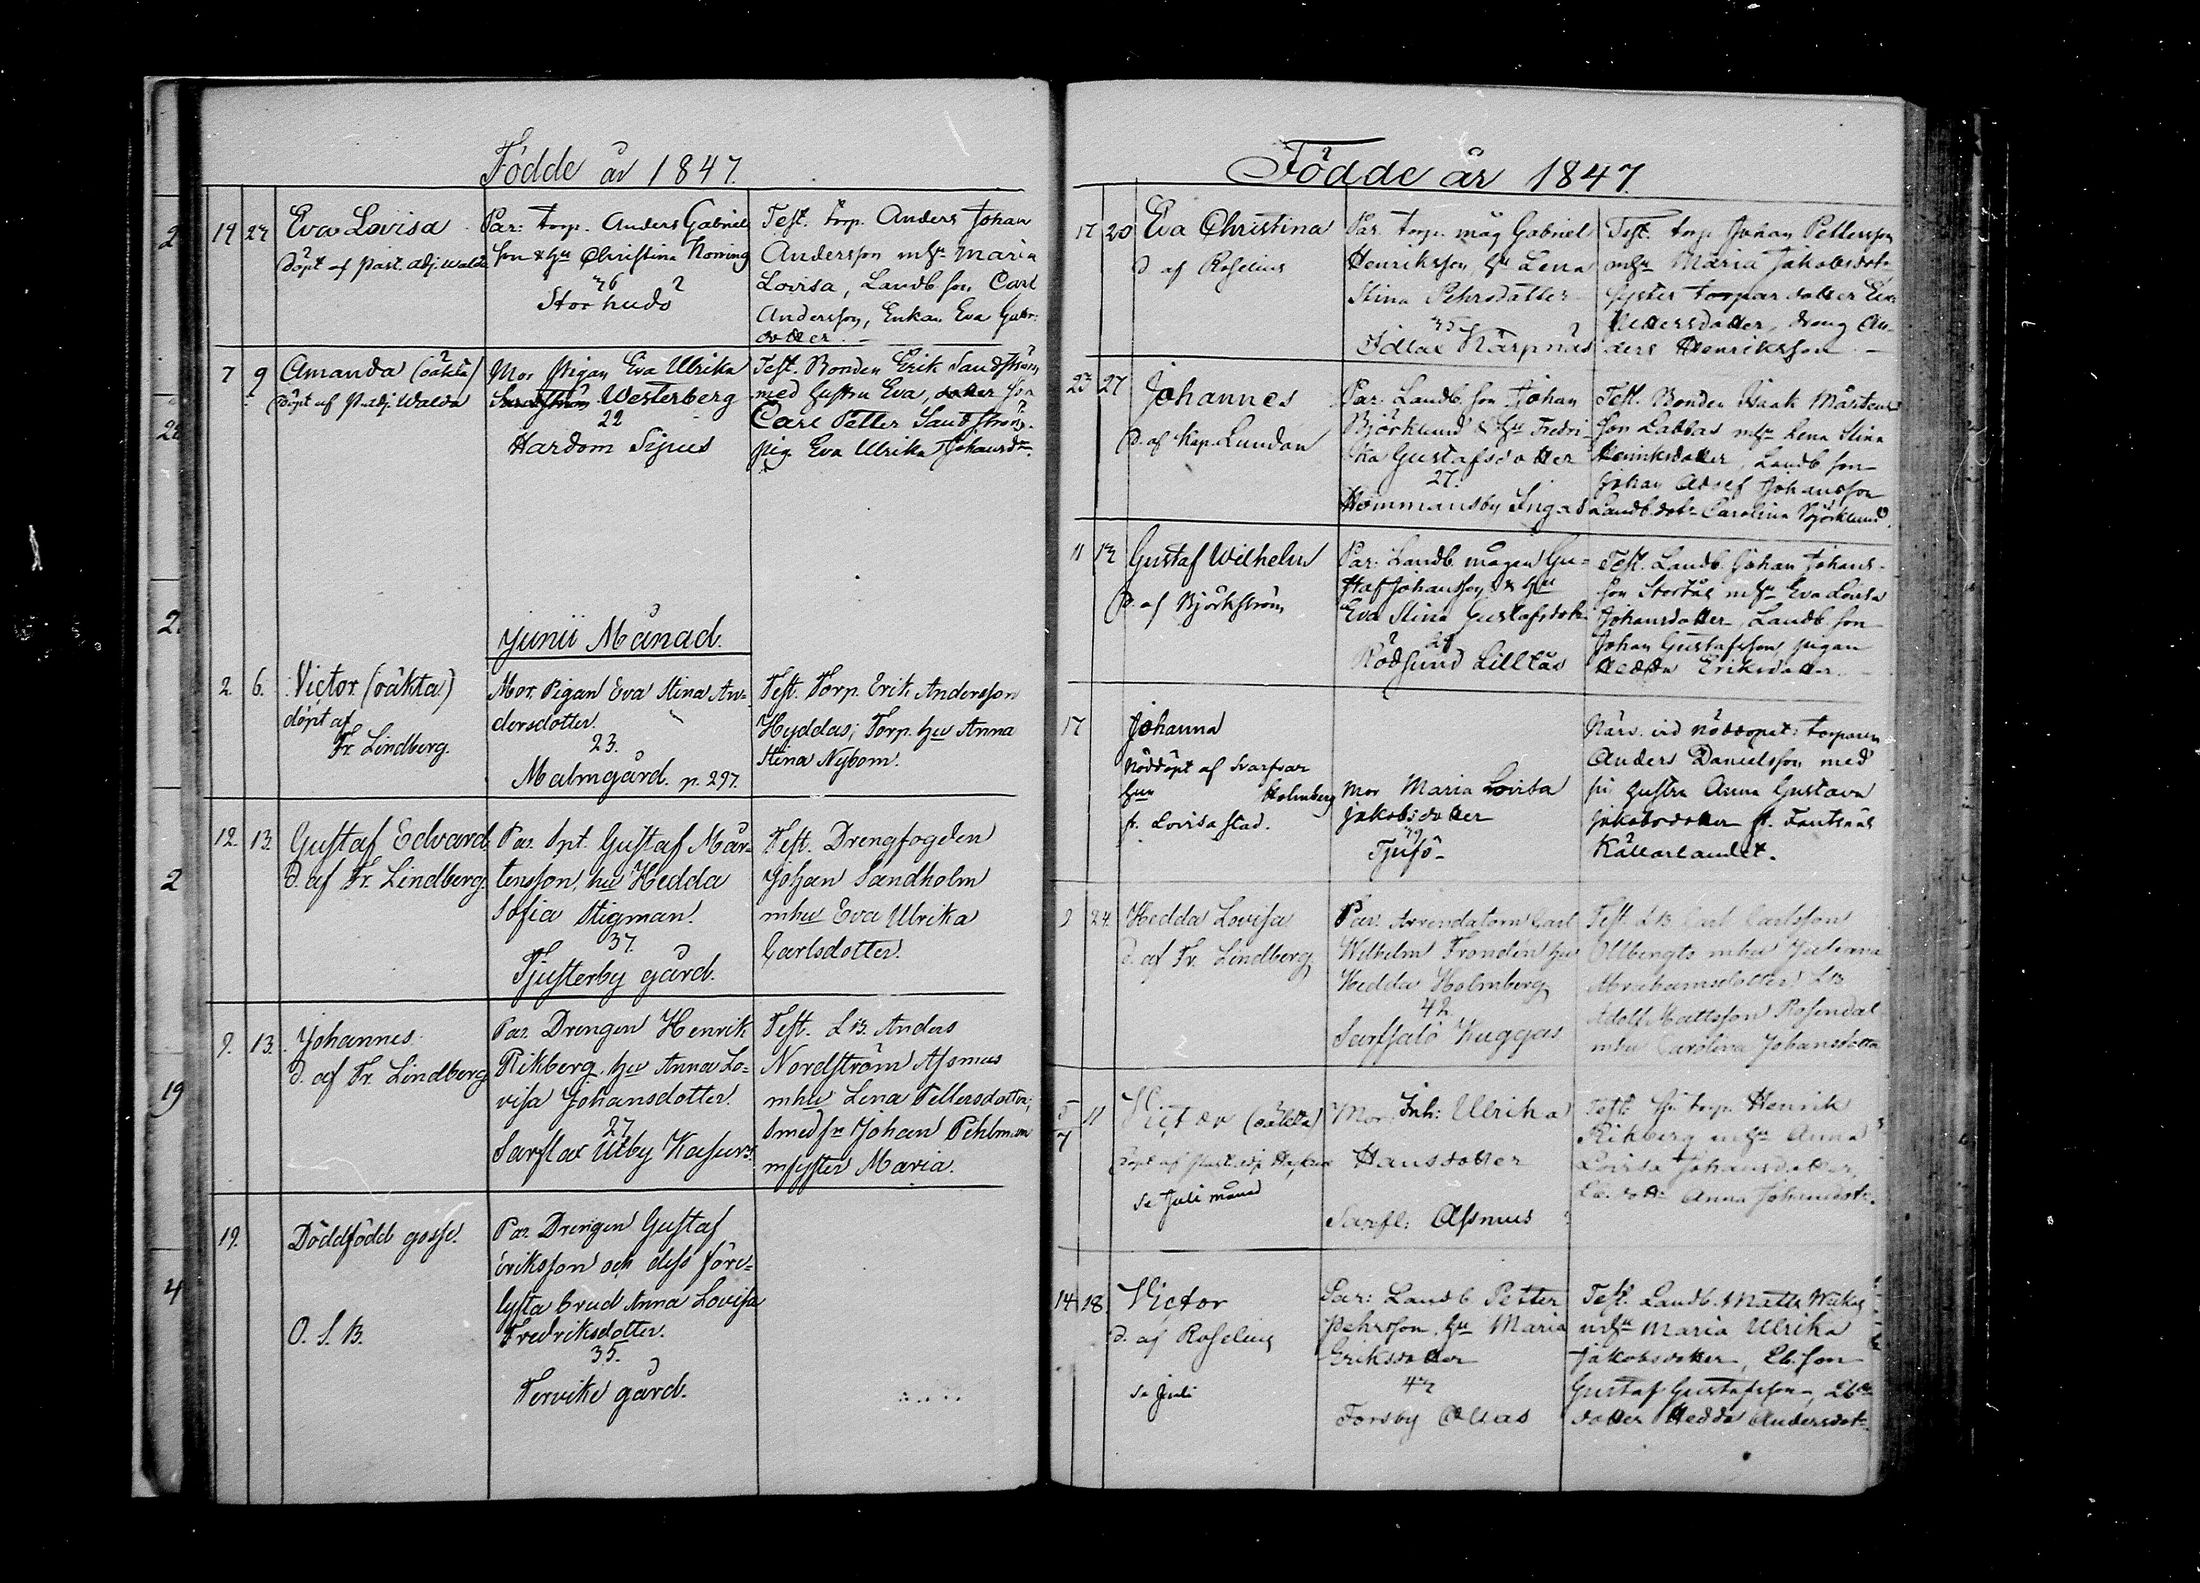 Födde år 1847.
19 27 Eva Lovisa
döpt af Past. adj. Walda
Par: torp. Anders Gabriels
son & hu Christina Norring
36
Storhudö
Test. torp. Anders Johan
Andersson m hu Maria
Lovisa, Landb. son Carl
Andersson, Enkan Eva
dotter.
7 9 Amanda (oäkta)
döpt af P. adj. Walda
Mor Pigan Eva Ulrika
Westerberg
22
Hardom Sipus
Test. Bonden Erik Sandström
med hustru Eva, son
Carl Petter Sandström
pig. Eva Ulrika Johansdr.
Junii Månad.
2. 6. Victor (oäkta)
döpt af
Fr. Lindberg.
Mor. Pigan Eva Stina An-
dersdotter.
23.
Malmgård. p. 297.
Test. Torp. Erik Andersson
Hyddas; Torp. hu Anna
Stina Nybom.
12. 13. Gustaf Edvard
d. af Fr. Lindberg.
Par. Spt. Gustaf Mår-
tensson, hu Hedda
Sofia Stigman.
37.
Tjusterby gård.
Test. Drengfogden
Johan Sandholm
mhu Eva Ulrika
Carlsdotter.
9. 13. Johannes.
d. af Fr. Lindberg
Par. Drengen Henrik
Rikberg, hu Anna Lo-
visa Johansdotter.
27
Sarflax Utby
Test. L.B. Anders
Nordström Assmus
mhu Lena Pettersdotter;
Smed sn Johan Pehlman
m syster Maria.
19. Dödfödd gosse.
O. S. B.
Par. Drengen Gustaf
Eriksson och dess före-
lysta brud Anna Lovisa
Fredriksdotter.
35.
Tervike gård.
Födde år 1847.
17 20 Eva Christina
d af Roselius
Par. torp. måg Gabriel
Henriksson, hu Lena
Stina Pehrsdotter
35
Idlax Närpnäs
Test. torp Johan Pettersson
mhu Maria Jakobsdotr
syster torpardotter
Pettersdotter, dreng An-
ders Henriksson
23 27 Johannes
d. af Kap. Lundan
Par. Landb. son Johan
Björklund & hu Fredri-
ka Gustafsdotter
27.
Hommansby Ingas
Test. Bonden Isaak Mårtens
son Labbas mhu Lena Stina
Henriksdotter, Landb son
Johan Adolf Johansson
Landb. dotr Carolina Björklund.
11 13 Gustaf Wilhelm
d. af Björkström
Par. Landb. mågen Gu-
staf Johansson & hu
Eva Stina Gustafsdotr
24
Rödsund Lilltås
Test. Landb. Johan Johans-
son Stortås mhu Eva Lovisa
Johansdotter, Landb son
Johan Gustafsson pigan
Hedda Eriksdotter.
17 Johanna
Nöddöpt af Svarfvar
hun Holmberg
fr. Lovisa stad.
Mor Maria Lovisa
Jakobsdotter
Tjusö-
Närv. vid nöddopet: torparen
Anders Danielsson med
sin hustru Anna Gustava
Jakobsdotter fr. Fantsnäs
Källarlandet.
9 24. Hedda Lovisa
d. af Fr. Lindberg
Par. Arrendatorn Carl
Wilhelm Frondén hu
Hedda Holmberg
42
Sarfsalö Kuggas
Test. L.B. Carl Carlsson
Ollbengts mhu Juliana
Abrahamsdotter; L.B.
Adolf Mattsson Rosendal
mhu Carolina Johansdotter
5/7 11 Victor (oäkta)
döpt af Past. adj.
Se Juli månad
Mor. Inh: Ulrika
Hansdotter
Sarfl: Assmus
Test: torp. Henrik
Rikberg mhu Anna
Lovisa Johansdotter,
Lb. dotr Anna Johansdotr.
14 18. Victor
d. af Roselius
Se Juli
Par: Landb Petter
Pehrsson, hu Maria
Eriksdotter
43
Forsby Ollas
Test. Landb. Matts
mhu Maria Ulrika
Jakobsdotter, Lb. son
Gustaf Gustafsson, Lb
dotter Hedda Andersdotr.